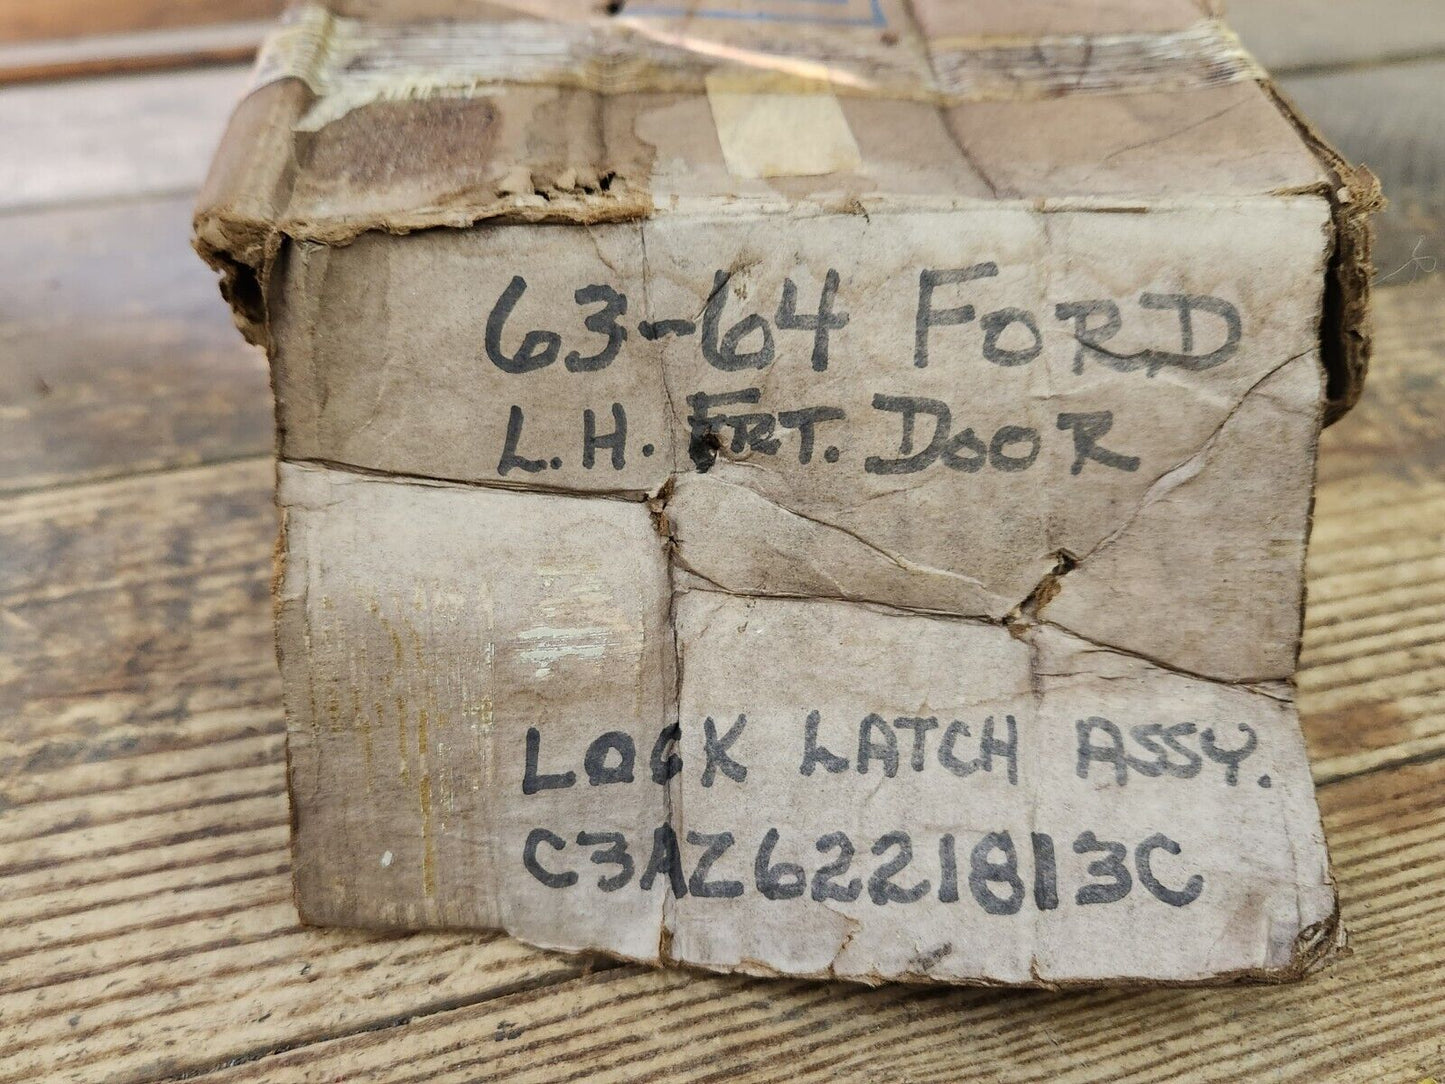 63-64 FORD
L.H. FRT. DOOR
LOCK LATCH ASSY.
C3AZ6221813C